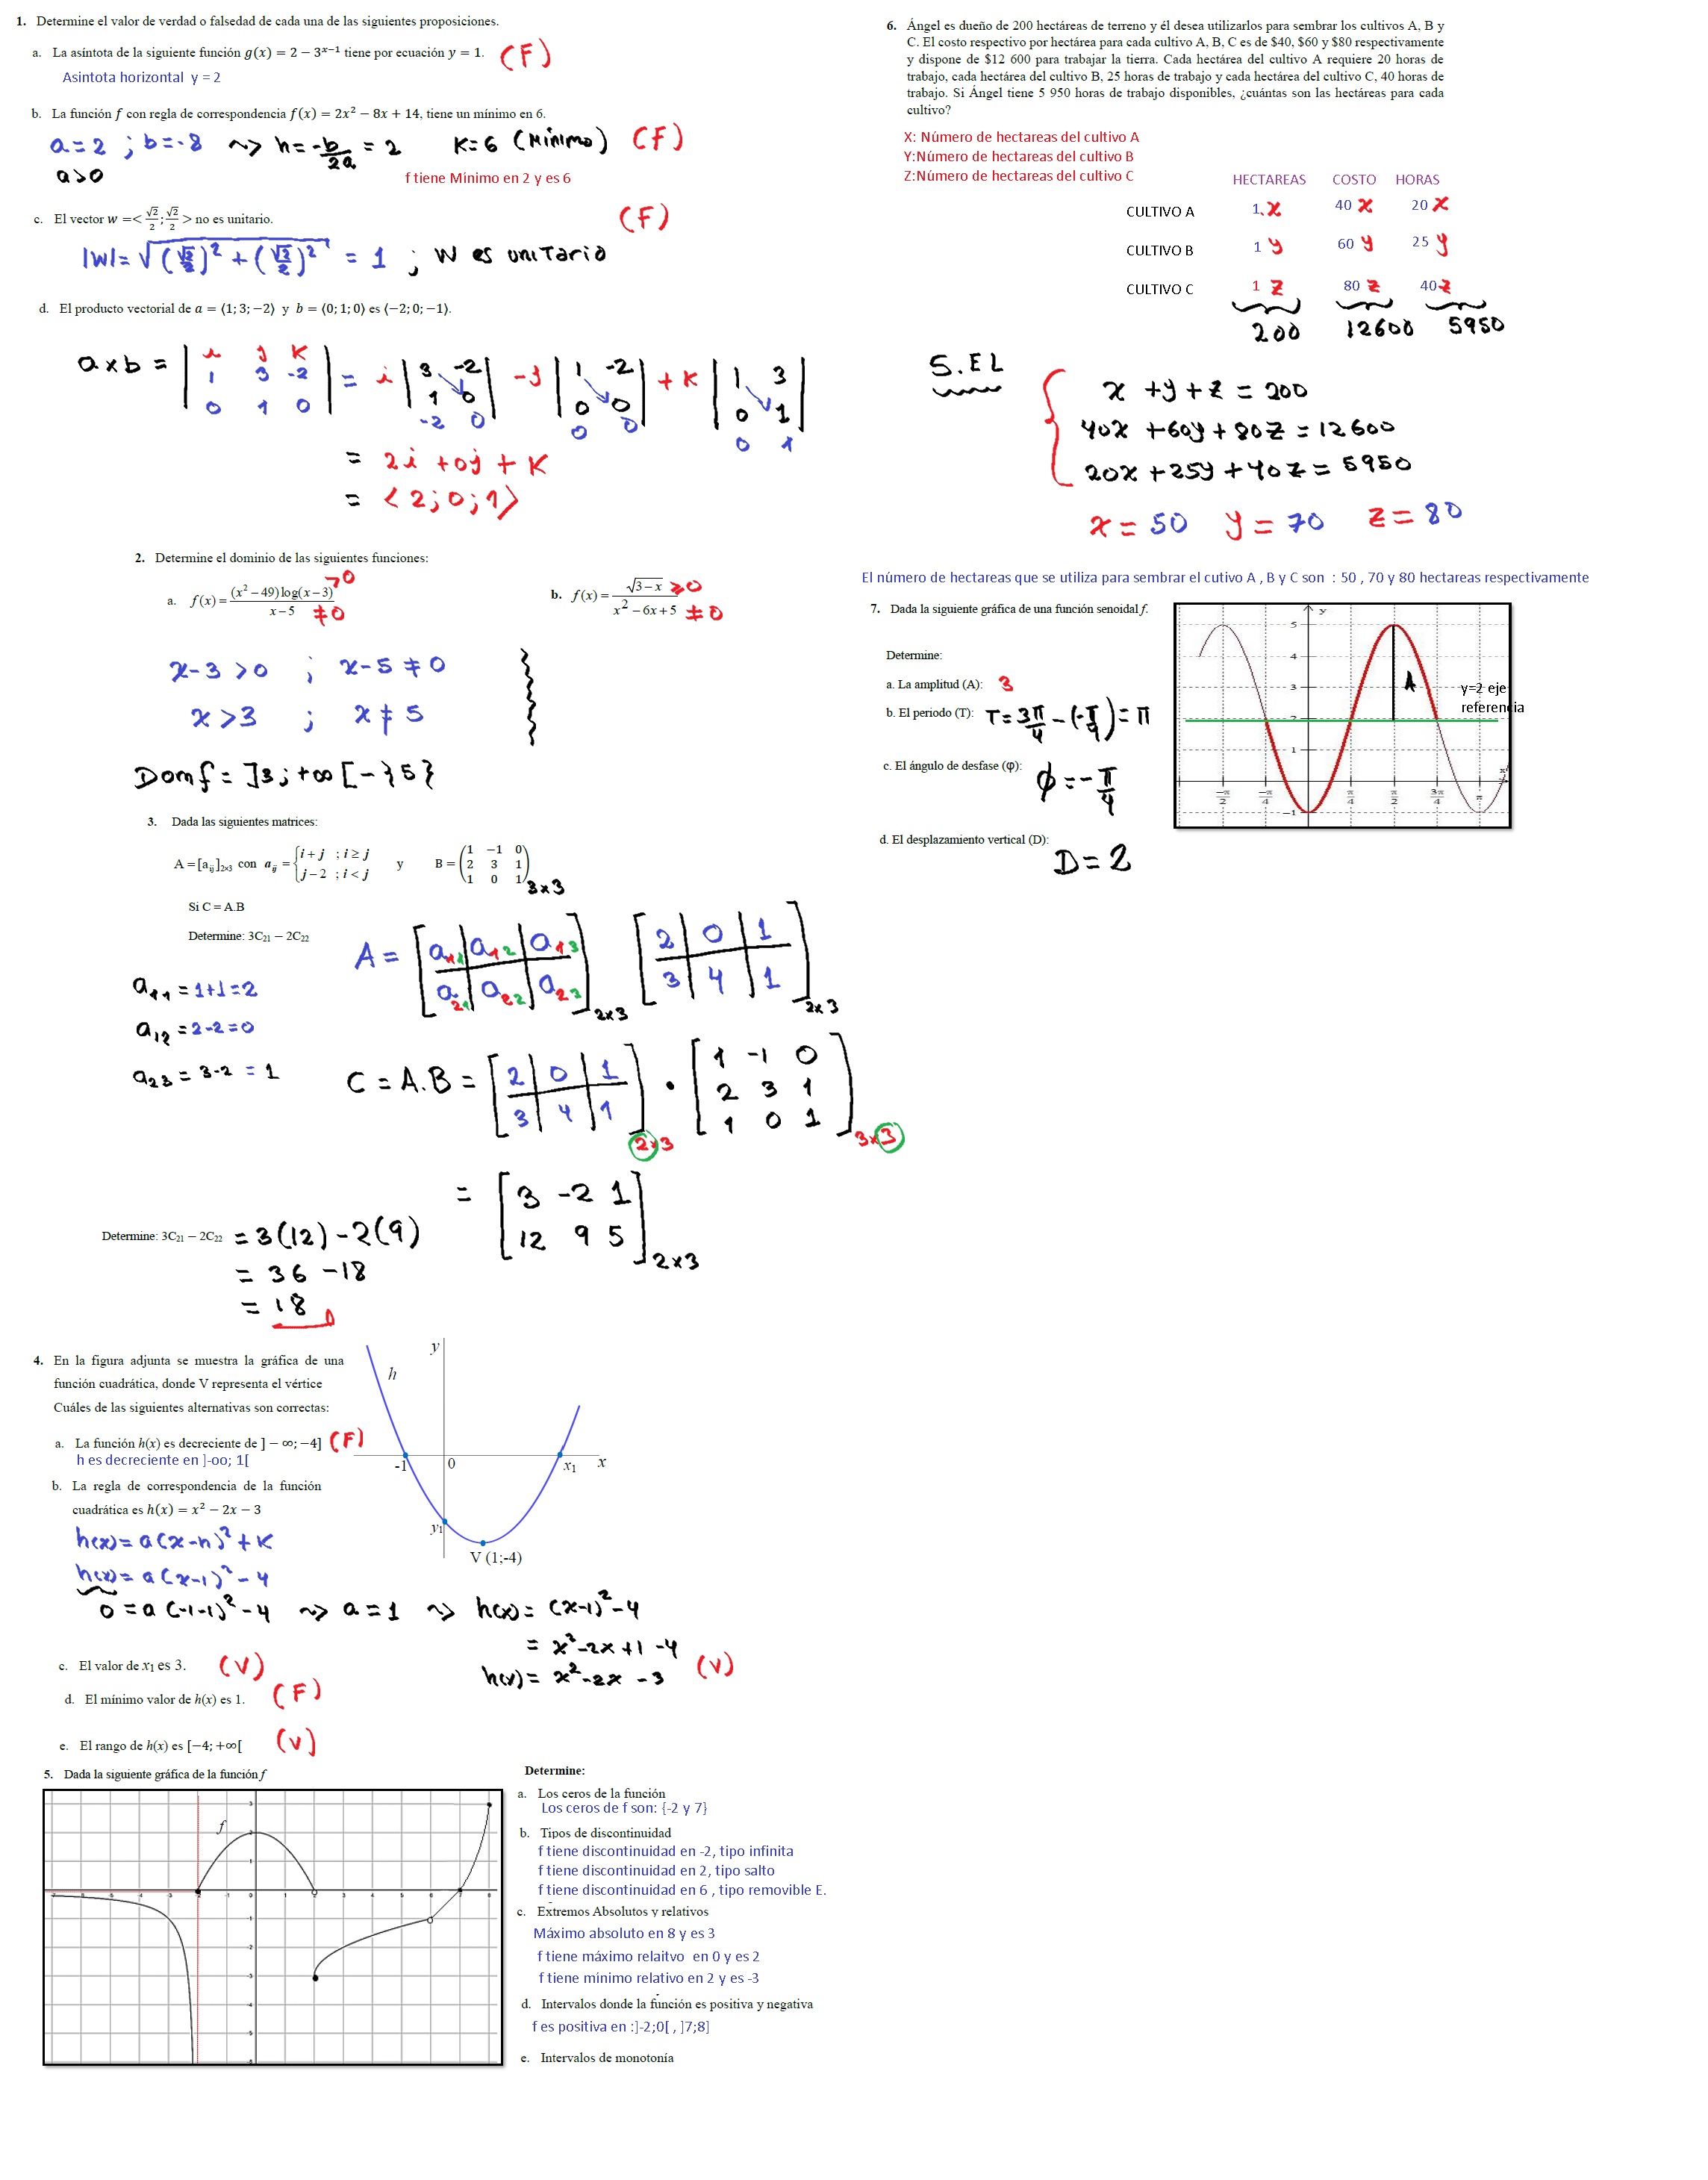 1. Determine el valor de verdad o falsedad de cada una de las siguientes proposiciones.
a. La asíntota de la siguiente función g(x) = 2 − 3^{x−1} tiene por ecuación y = 1. (F)
Asintota horizontal y = 2
b. La función f con regla de correspondencia f(x) = 2x² − 8x + 14, tiene un mínimo en 6.
a=2 ; b=-8 ~> h=-b/2a = 2 K=6 (Mínimo) (F)
a>0
f tiene Mínimo en 2 y es 6
c. El vector w =< √2/2 ; √2/2 > no es unitario. (F)
|W|= √((√2/2)² + (√2/2)²) = 1 ; W es unitario
d. El producto vectorial de a = ⟨1; 3; −2⟩ y b = ⟨0; 1; 0⟩ es ⟨−2; 0; −1⟩.
a x b = | i j K | = i | 3 -2 | -j | 1 -2 | + K | 1 3 |
1 3 -2 1 0 0 0 0 1
0 1 0 -2 0 0 0 0 1
= 2i + 0j + K
= ⟨2; 0; 1⟩
2. Determine el dominio de las siguientes funciones:
a. f(x) = (x² − 49) log(x − 3) / x − 5 >0 ≠0
b. f(x) = √3 − x / x² − 6x + 5 ≥0 ≠0
x-3 >0 ; x-5 ≠ 0
x >3 ; x ≠ 5
Domf = ]3; +∞ [ - {5}
3. Dada las siguientes matrices:
A = [a_ij]_2×3 con a_ij = { i + j ; i ≥ j
j − 2 ; i < j
y B = ( 1 −1 0
2 3 1
1 0 1 ) 3x3
Si C = A.B
Determine: 3C21 − 2C22
A = [ a11 a12 a13 [ 2 0 1
a21 a22 a23 ] 2x3 3 4 1 ] 2x3
a11 = 1+1=2
a12 = 2-2=0
a23 = 3-2 = 1
C = A.B = [ 2 0 1 ] . [ 1 -1 0
3 4 1 2 3 1
2x3 1 0 1 ] 3x3
= [ 3 -2 1
12 9 5 ] 2x3
Determine: 3C21 − 2C22 = 3(12) - 2(9)
= 36 - 18
= 18
4. En la figura adjunta se muestra la gráfica de una
función cuadrática, donde V representa el vértice
Cuáles de las siguientes alternativas son correctas:
a. La función h(x) es decreciente de ] − ∞; −4] (F)
h es decreciente en ]-oo; 1[
b. La regla de correspondencia de la función
cuadrática es h(x) = x² − 2x − 3
h(x) = a(x-h)² + K
h(x) = a(x-1)² - 4
0 = a(-1-1)² - 4 ~> a = 1 ~> h(x) = (x-1)² - 4
= x² - 2x + 1 - 4
h(x) = x² - 2x - 3 (V)
y
h
-1 0 x1 x
y1
V (1;-4)
c. El valor de x1 es 3. (V)
d. El mínimo valor de h(x) es 1. (F)
e. El rango de h(x) es [−4; +∞[ (V)
5. Dada la siguiente gráfica de la función f
f
Determine:
a. Los ceros de la función
Los ceros de f son: {-2 y 7}
b. Tipos de discontinuidad
f tiene discontinuidad en -2, tipo infinita
f tiene discontinuidad en 2, tipo salto
f tiene discontinuidad en 6 , tipo removible E.
c. Extremos Absolutos y relativos
Máximo absoluto en 8 y es 3
f tiene máximo relaitvo en 0 y es 2
f tiene mínimo relativo en 2 y es -3
d. Intervalos donde la función es positiva y negativa
f es positiva en :]-2;0[ , ]7;8]
e. Intervalos de monotonía
6. Ángel es dueño de 200 hectáreas de terreno y él desea utilizarlos para sembrar los cultivos A, B y
C. El costo respectivo por hectárea para cada cultivo A, B, C es de $40, $60 y $80 respectivamente
y dispone de $12 600 para trabajar la tierra. Cada hectárea del cultivo A requiere 20 horas de
trabajo, cada hectárea del cultivo B, 25 horas de trabajo y cada hectárea del cultivo C, 40 horas de
trabajo. Si Ángel tiene 5 950 horas de trabajo disponibles, ¿cuántas son las hectáreas para cada
cultivo?
X: Número de hectareas del cultivo A
Y:Número de hectareas del cultivo B
Z:Número de hectareas del cultivo C
HECTAREAS COSTO HORAS
CULTIVO A 1.x 40 x 20 x
CULTIVO B 1 y 60 y 25 y
CULTIVO C 1 z 80 z 40 z
200 12600 5950
S.EL
x + y + z = 200
40x + 60y + 80z = 12600
20x + 25y + 40z = 5950
x = 50 y = 70 z = 80
El número de hectareas que se utiliza para sembrar el cutivo A , B y C son : 50 , 70 y 80 hectareas respectivamente
7. Dada la siguiente gráfica de una función senoidal f.
Determine:
a. La amplitud (A): 3
b. El periodo (T): T = 3π/4 - (-π/4) = π
c. El ángulo de desfase (φ): ϕ = -π/4
d. El desplazamiento vertical (D): D = 2
y
5
4
3
2
1
-1
A
y=2 eje
referencia
-π/2 -π/4 π/4 π/2 3π/4 π x